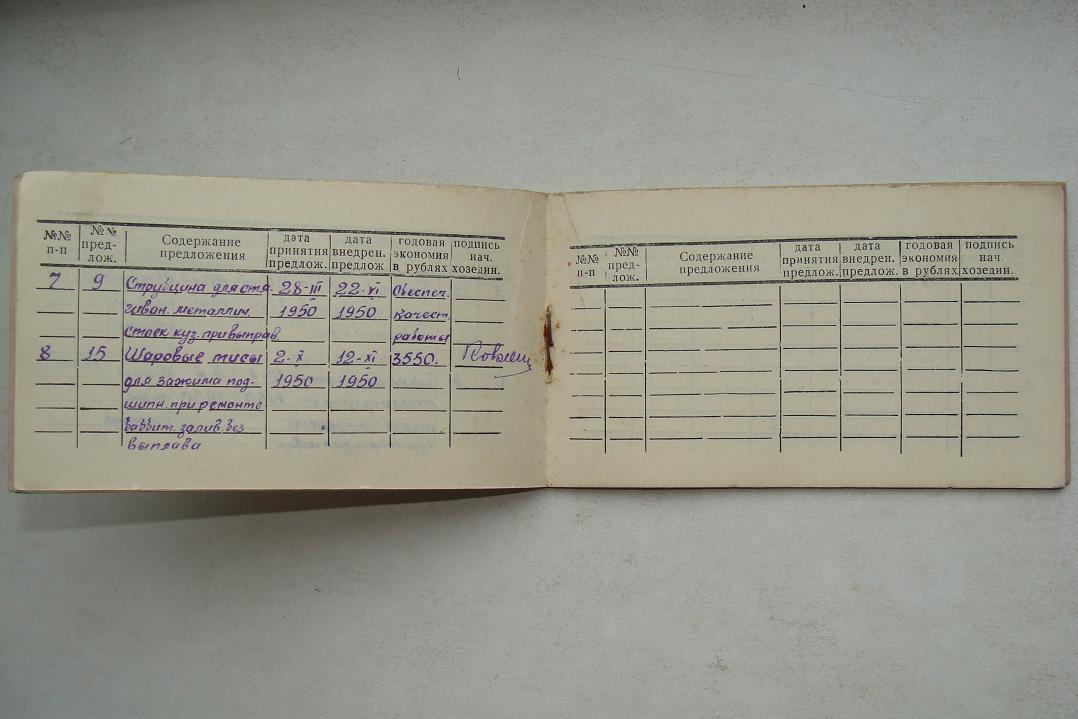 №№ п-п | №№ пред-лож. | Содержание предложения | дата принятия предлож. | дата внедрен. предлож. | годовая экономия в рублях | подпись нач. хозедин.
7 | 9 | Струбцина для стя- | 28-III | 22-XI | Обеспеч.
гиван. металлич. | 1950 | 1950 | качест.
стоек куз. при выправ. | работы
8 | 15 | Шаровые тисы | 2-X | 12-XI | 3550.
для зажима под- | 1950 | 1950
шипн. при ремонте
баббит. залив. без
выплава
№№ п-п | №№ пред-лож. | Содержание предложения | дата принятия предлож. | дата внедрен. предлож. | годовая экономия в рублях | подпись нач. хозедин.